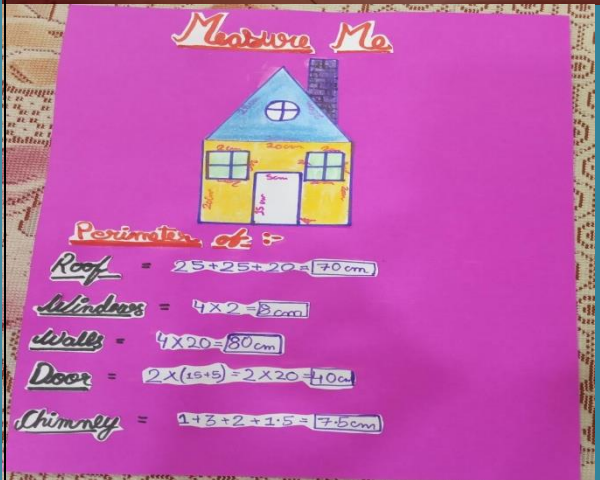 Measure Me
20cm
5cm
Perimeter of :-
Roof = 25+25+20= 70cm
Windows = 4×2= 8cm
Walls = 4×20= 80cm
Door = 2×(15+5)=2×20=40cm
Chimney = 1+3+2+1.5= 7.5cm